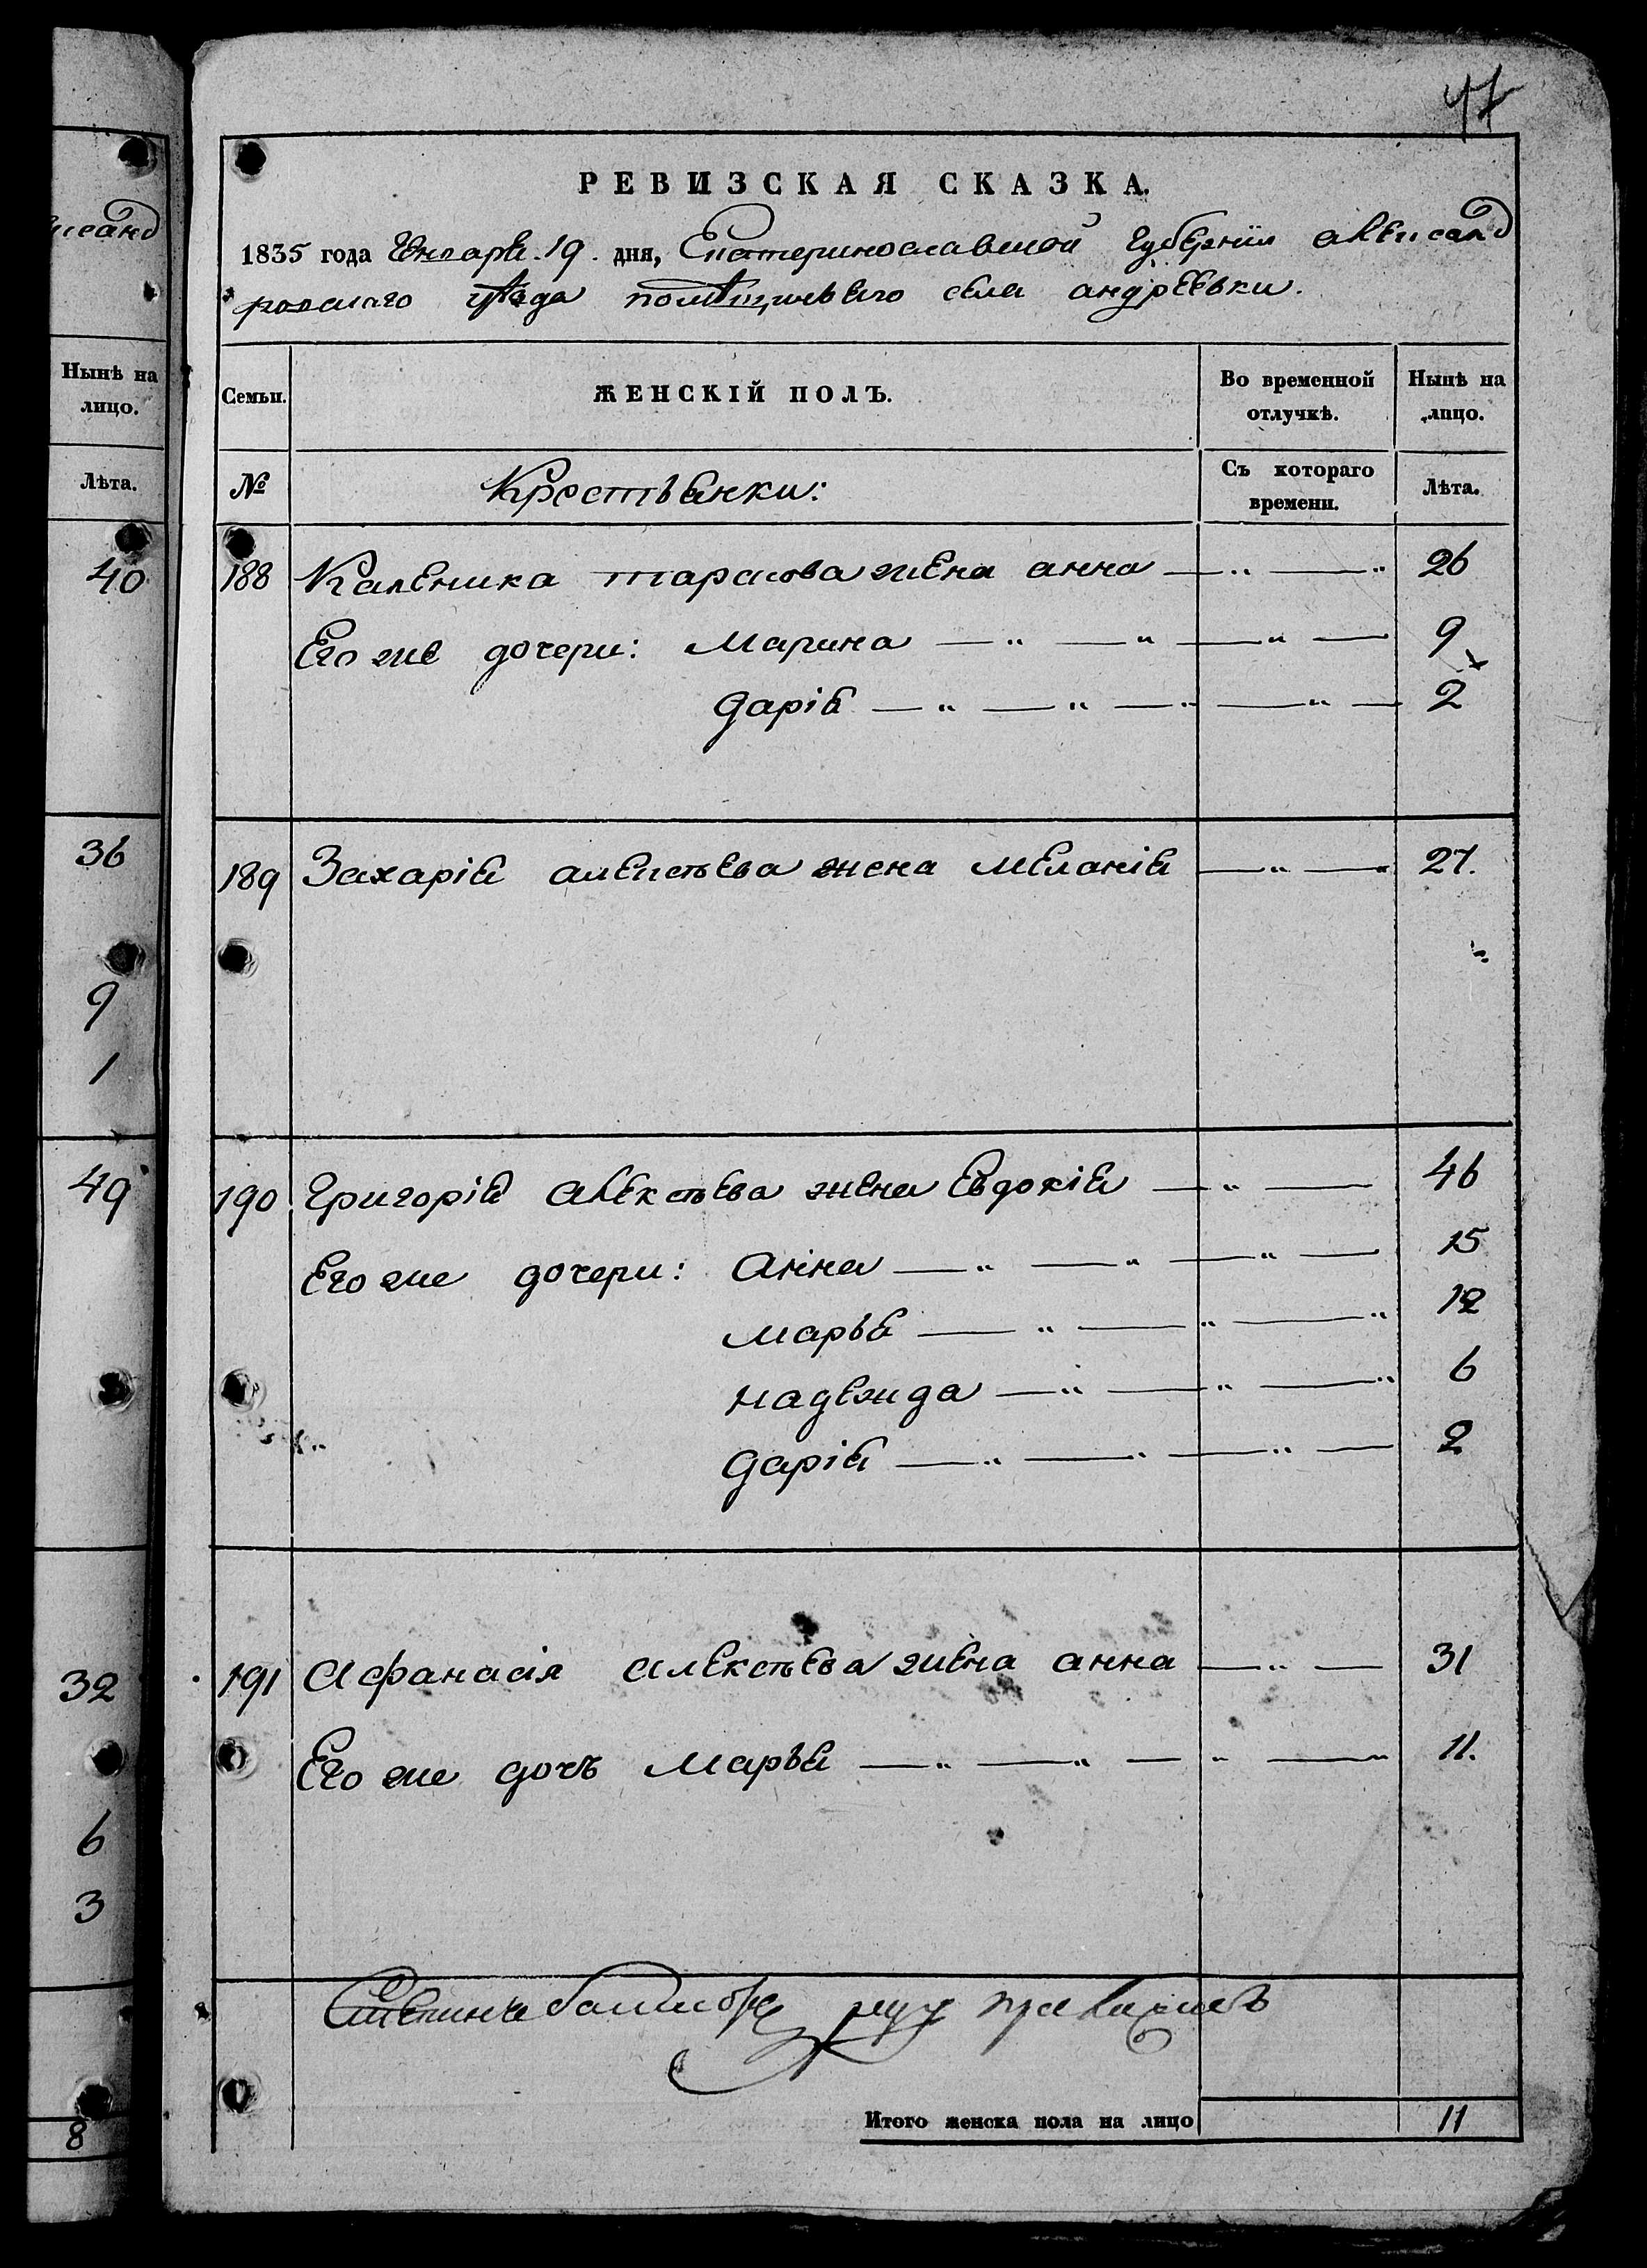 47
РЕВИЗСКАЯ СКАЗКА.
1835 года Генваря 19. дня, Екатеринославской Губерніи Александ
ровскаго уѣзда помѣщичьяго села андреевки.
Семьи.
ЖЕНСКІЙ ПОЛЪ.
Во временной отлучкѣ.
Нынѣ на лицо.
№
Крестьянки:
Съ котораго времени.
Лѣта.
188 Каленика тарасова жена анна — " — " 26
Его же дочери: Марина — " — " — " — 9
Дарія — " — " — " — " — 2
189 Захарія алексѣева жена Меланія — " — " 27.
190 Григорія алексѣева жена Евдокія — " — 46
Его же дочери: Анна — " — " — " — 15
Марья — " — " — " 12
Надежда — " — " — " 6
Дарія — " — " — " — 2
191 Афанасія алексѣева жена анна — " — 31
Его же дочь Марья — " — " — " — " 11.
Итого женска пола на лицо 11
сeанд
Нынѣ на лицо.
Лѣта.
40
36
9
1
49
32
6
3
8